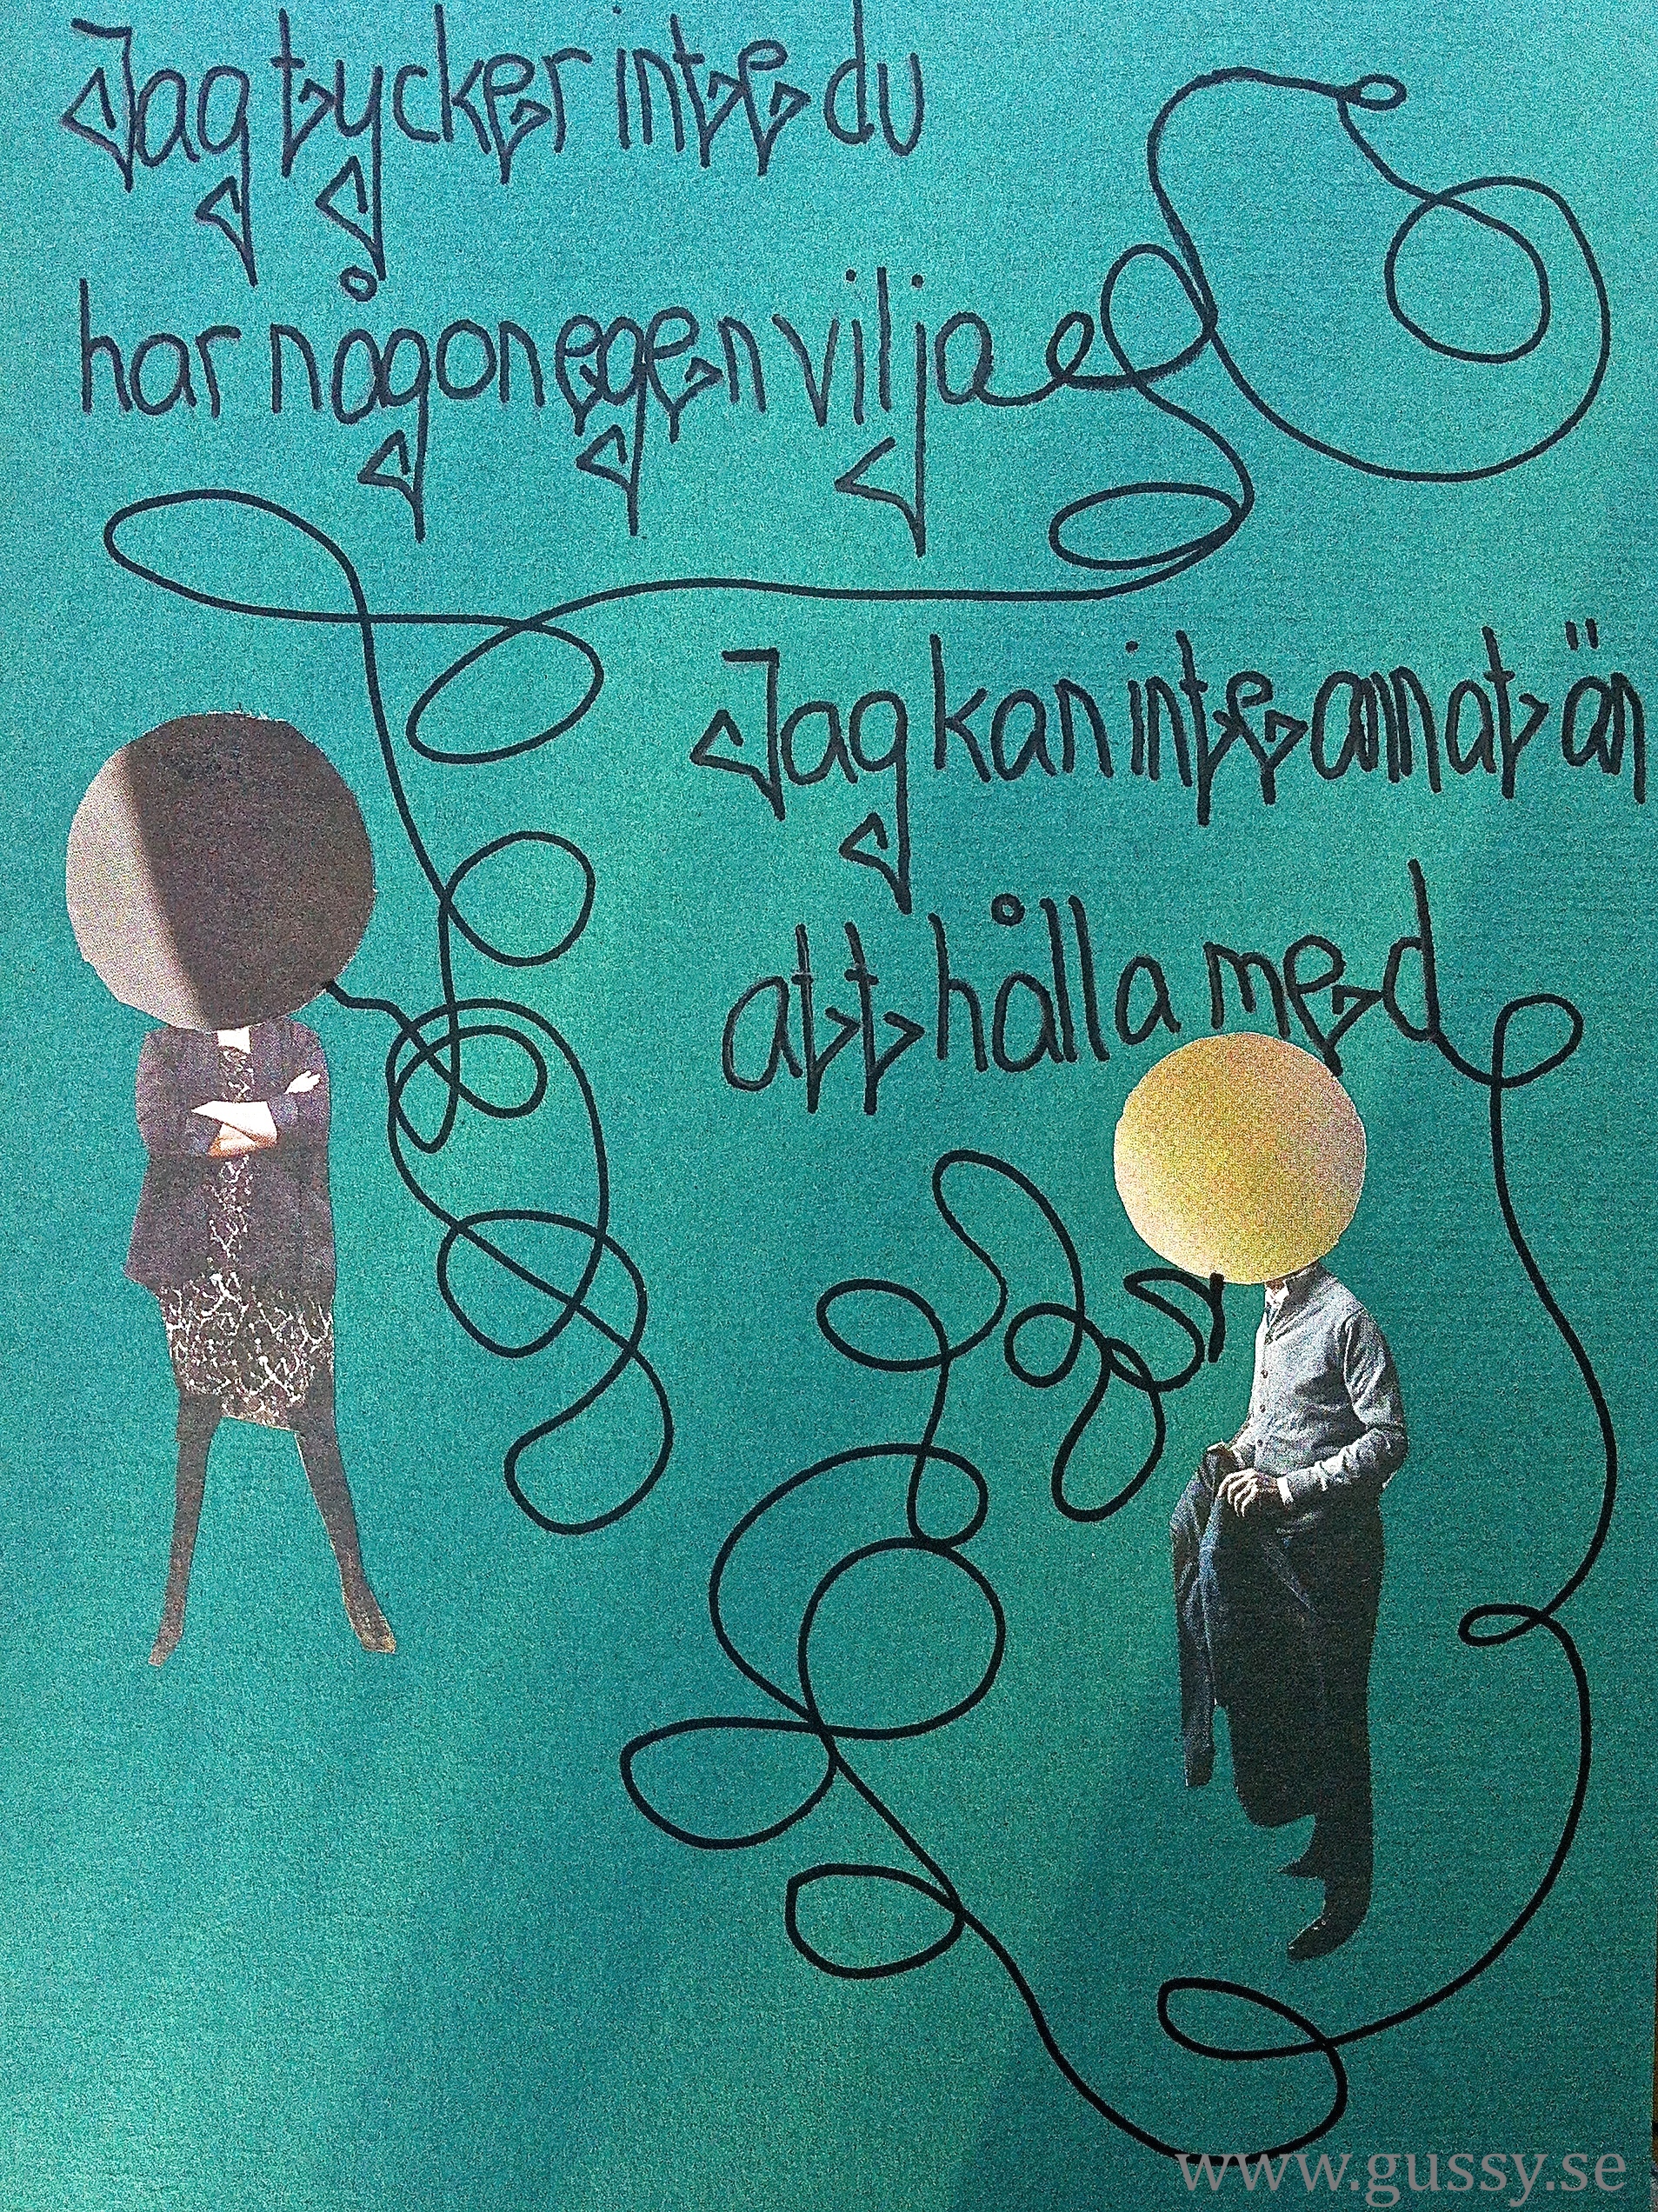 Jag tycker inte du
har någon egen vilja
Jag kan inte annat än
att hålla med
www.gussy.se